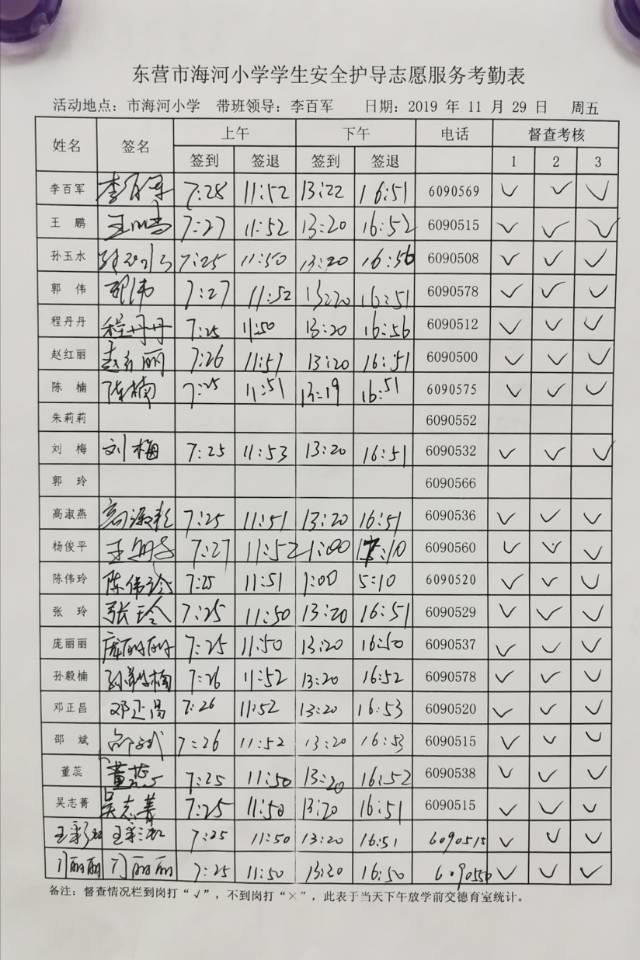 东营市海河小学学生安全护导志愿服务考勤表
活动地点：市海河小学 带班领导：李百军 日期：2019 年 11 月 29 日 周五
姓名 签名 上午 下午 电话 督查考核
签到 签退 签到 签退 1 2 3
李百军 李百军 7:28 11:52 13:22 16:51 6090569 ✓ ✓ ✓
王 鹏 王鹏 7:27 11:52 13:20 16:52 6090515 ✓ ✓ ✓
孙玉水 7:25 11:50 13:20 16:56 6090508 ✓ ✓ ✓
郭 伟 郭伟 7:27 11:52 13:20 16:51 6090578 ✓ ✓ ✓
程丹丹 程丹丹 7:25 11:50 13:20 16:56 6090512 ✓ ✓ ✓
赵红丽 赵红丽 7:26 11:51 13:20 16:51 6090500 ✓ ✓ ✓
陈 楠 陈楠 7:25 11:51 13:19 16:51 6090575 ✓ ✓ ✓
朱莉莉 6090552
刘 梅 刘梅 7:25 11:53 13:20 16:51 6090532 ✓ ✓ ✓
郭 玲 6090566
高淑燕 高淑燕 7:25 11:51 13:20 16:51 6090536 ✓ ✓ ✓
杨俊平 7:27 11:52 1:00 10 6090560 ✓ ✓ ✓
陈伟玲 陈伟玲 7:25 11:51 1:00 5:10 6090520 ✓ ✓ ✓
张 玲 张玲 7:25 11:50 13:20 16:51 6090529 ✓ ✓ ✓
庞丽丽 庞丽丽 7:25 11:50 13:20 16:50 6090537 ✓ ✓ ✓
孙毅楠 孙毅楠 7:26 11:52 13:20 16:52 6090578 ✓ ✓ ✓
邓正昌 邓正昌 7:26 11:52 13:20 16:53 6090520 ✓ ✓ ✓
邵 斌 邵斌 7:26 11:52 13:20 16:53 6090515 ✓ ✓ ✓
董蕊 董蕊 7:25 11:50 13:20 16:52 6090538 ✓ ✓ ✓
吴志菁 吴志菁 7:25 11:50 13:20 16:51 6090515 ✓ ✓ ✓
王彩 王彩 7:25 11:50 13:20 16:51 6090515 ✓ ✓ ✓
闫丽丽 闫丽丽 7:25 11:50 13:20 16:50 6090550 ✓ ✓ ✓
备注：督查情况栏到岗打“√”，不到岗打“×”，此表于当天下午放学前交德育室统计。